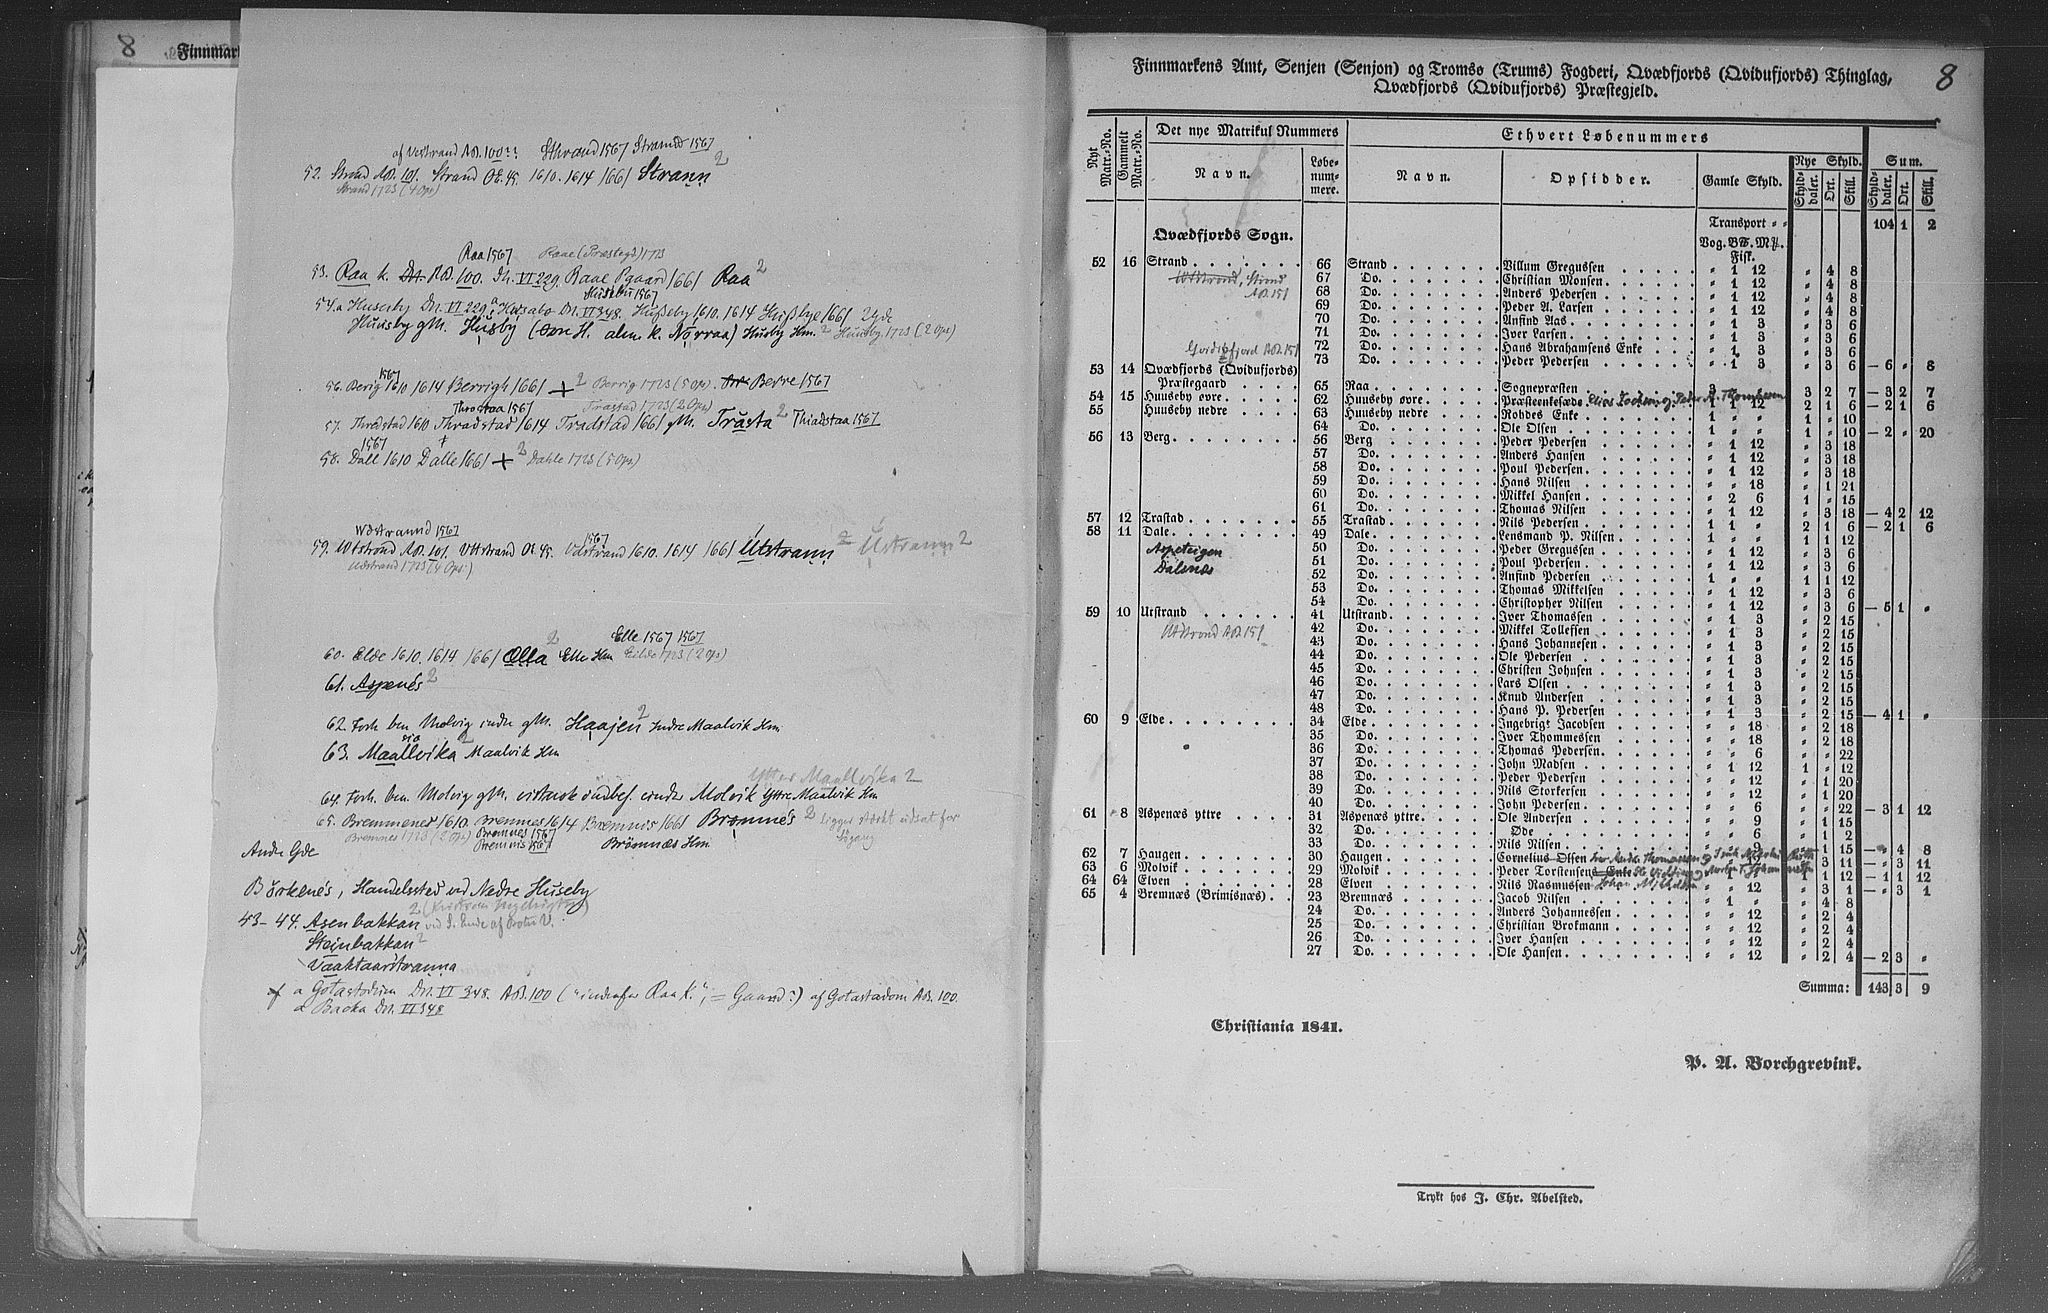 8
Finnmark
af Vestrand AB. 100?? Sthrand 1567 Strannd 1567
52. Strand AB. 101. Strand OE. 45. 1610. 1614 1661 Strann 2
Strand 1723 (4 Ops)
Raa 1567 Raae (Præstegd) 1723
53. Raa k. AB. 100. Dn. VI 229. Raae Pgaard 1661 Raa 2
Husebu 1567
54. a Huseby Dn. VI 229. a Husabo Dn. VI 348. Husseby 1610. 1614 Hussbye 1661 2 Gde
Huusby gM. Husby (Øvre H. alm. k. Nørraa) Husby Hm. 2 Huusby 1723 (2 Ops)
56. Berig 1567 1610 1614 Berrigh 1661 + 2 Berrig 1723 (5 Ops). Berre 1567
Throstaa 1567 Trastad 1723 (2 Ops)
57. Thradstad 1610 Thradstad 1614 Tradstad 1661 gM. Trasta 2 Thiadstaa 1567
1567
58. Dall 1610 Dalle 1661 + 2 Dahle 1723 (5 Ops)
Wdstrannd 1567 1567
59. Utstrond AB. 101. Uttstrand OE. 45. Udstrand 1610. 1614 1661 Utstrann 2 Utstrann 2
Udstrand 1723 (4 Ops)
Elle 1567 1567
60. Elde 1610. 1614 1661 Ælla 2 Elle Hm Eilde 1723 (2 Ops)
61. Aspenes 2
62. Forh. ben. Molvig indre gM. Haajen 2 Indre Maalvik Hm.
63. Maallvika 2 Maalvik Hm
Ytter Maallvika 2
64. Forh. ben. Molvig gM. indre Molvik Yttre Maalvik Hm
65. Bremmenes 1610. Bremnes 1614 Bremnis 1661 Brømnes 2 ligger stærkt udsat for
Bremnes 1723 (2 Ops) Bremnes 1567 Brømnæs Hm. Søgang
Bremnis 1567
Andre Gde
Børkenes, Handelssted ved Nedre Huseby
43-44. Asenbakkan ved S. Ende af
Steinbakkan 2
Vaaktaarstranna
a Gotastodum Dn. VI 348. AB. 100 ("indenfor Raa k.", = Gaard?) af Gotastadom AB. 100.
a Backa Dn. VI 348
Finnmarkens Amt, Senjen (Senjon) og Tromsø (Trums) Fogderi, Qvædfjords (Qvidufjords) Thinglag,
Qvædfjords (Qvidufjords) Præstegjeld.
8
Nyt Matr.-No. Gammelt Matr.-No. Det nye Matrikul Nummers Ethvert Løbenummers
Navn. Løbenummere. Navn. Opsidder. Gamle Skyld. Nye Skyld. Sum.
Skylddaler. Ort. Skill. Skylddaler. Ort. Skill.
Transport " " 104 1 2
Qvædfjords Sogn. Vog. B℔. Mk. Fisk.
52 16 Strand 66 Strand Villum Gregussen " 1 12 " 4 8
Utstrond, Strond AB. 151 67 Do. Christian Monsen " 1 12 " 4 8
68 Do. Anders Pedersen " 1 12 " 4 8
69 Do. Peder A. Larsen " 1 12 " 4 8
70 Do. Anfind Aas " 1 3 " 3 6
71 Do. Iver Larsen " 1 3 " 3 6
72 Do. Hans Abrahamsens Enke " 1 3 " 3 6
Gvidisfjord AB. 151 73 Do. Peder Pedersen " 1 3 " 3 6 — 6 " 8
53 14 Qvædfjords (Qvidufjords)
Præstegaard 65 Raa Sognepræsten 3 " " 3 2 7 — 3 2 7
54 15 Huuseby øvre 62 Huuseby øvre Præsteenkesæde 1 1 12 2 1 6 — 2 1 6
55 Huuseby nedre 63 Huuseby nedre Rohdes Enke 1 " " 1 " 10
64 Do. Ole Olsen 1 " " 1 " 10 — 2 " 20
56 13 Berg 56 Berg Peder Pedersen " 1 12 " 3 18
57 Do. Anders Hansen " 1 12 " 3 18
58 Do. Poul Pedersen " 1 12 " 3 18
59 Do. Hans Nilsen " " 18 " 1 21
60 Do. Mikkel Hansen " 2 6 1 " 15
61 Do. Thomas Nilsen " 1 12 " 3 18 — 4 2 12
57 12 Trastad 55 Trastad Nils Pedersen 1 1 " 2 1 6 — 2 1 6
58 11 Dale 49 Dale Lensmand P. Nilsen 1 " " 1 1 12
Aspeteigen 50 Do. Peder Gregussen " 1 12 " 3 6
Dalsnæs 51 Do. Poul Pedersen " 1 12 " 3 6
52 Do. Anfind Pedersen 1 " " 1 1 12
53 Do. Thomas Mikkelsen " 1 12 " 3 6
54 Do. Christopher Nilsen " 1 12 " 3 6 — 5 1 "
59 10 Utstrand 41 Utstrand Iver Thomassen " 1 3 " 2 15
Utstrond AB. 151 42 Do. Mikkel Tollefsen " 1 3 " 2 15
43 Do. Hans Johannesen " 1 3 " 2 15
44 Do. Ole Pedersen " 1 3 " 2 15
45 Do. Christen Johnsen " 1 3 " 2 15
46 Do. Lars Olsen " 1 3 " 2 15
47 Do. Knud Andersen " 1 3 " 2 15
48 Do. Hans P. Pedersen " 1 3 " 2 15 — 4 1 "
60 9 Elde 34 Elde Ingebrigt Jacobsen " " 18 " 2 18
35 Do. Iver Thommessen " " 18 " 2 18
36 Do. Thomas Pedersen " " 6 " " 22
37 Do. John Madsen " 1 12 1 " 12
38 Do. Peder Pedersen " " 12 " 1 20
39 Do. Nils Storkersen " " 12 " 1 20
40 Do. John Pedersen " " 6 " " 22 — 3 1 12
61 8 Aspenæs yttre 31 Aspenæs yttre Ole Andersen " " 9 " 1 15
32 Do. Øde " " 6 " 1 2
33 Do. Nils Nilsen " " 9 " 1 15 — " 4 8
62 7 Haugen 30 Haugen Cornelius Olsen " 3 11 — " 3 11
63 6 Molvik 29 Molvik Peder Torstensens Enke 1 " 12 — 1 1 12
64 64 Elven 28 Elven Nils Rasmussen Johan " " 12 " 3 1 — " 3 1
65 4 Bremnæs (Brimisnæs) 23 Bremnæs Jacob Nilsen " 1 " " 4 8
24 Do. Anders Johannessen " " 12 " 2 4
25 Do. Christian Brokmann " " 12 " 2 4
26 Do. Iver Hansen " " 12 " 2 4
27 Do. Ole Hansen " " 12 " 2 4 — 2 3 "
Summa: 143 3 9
Christiania 1841.
P. A. Borchgrevink.
Trykt hos J. Chr. Abelsted.